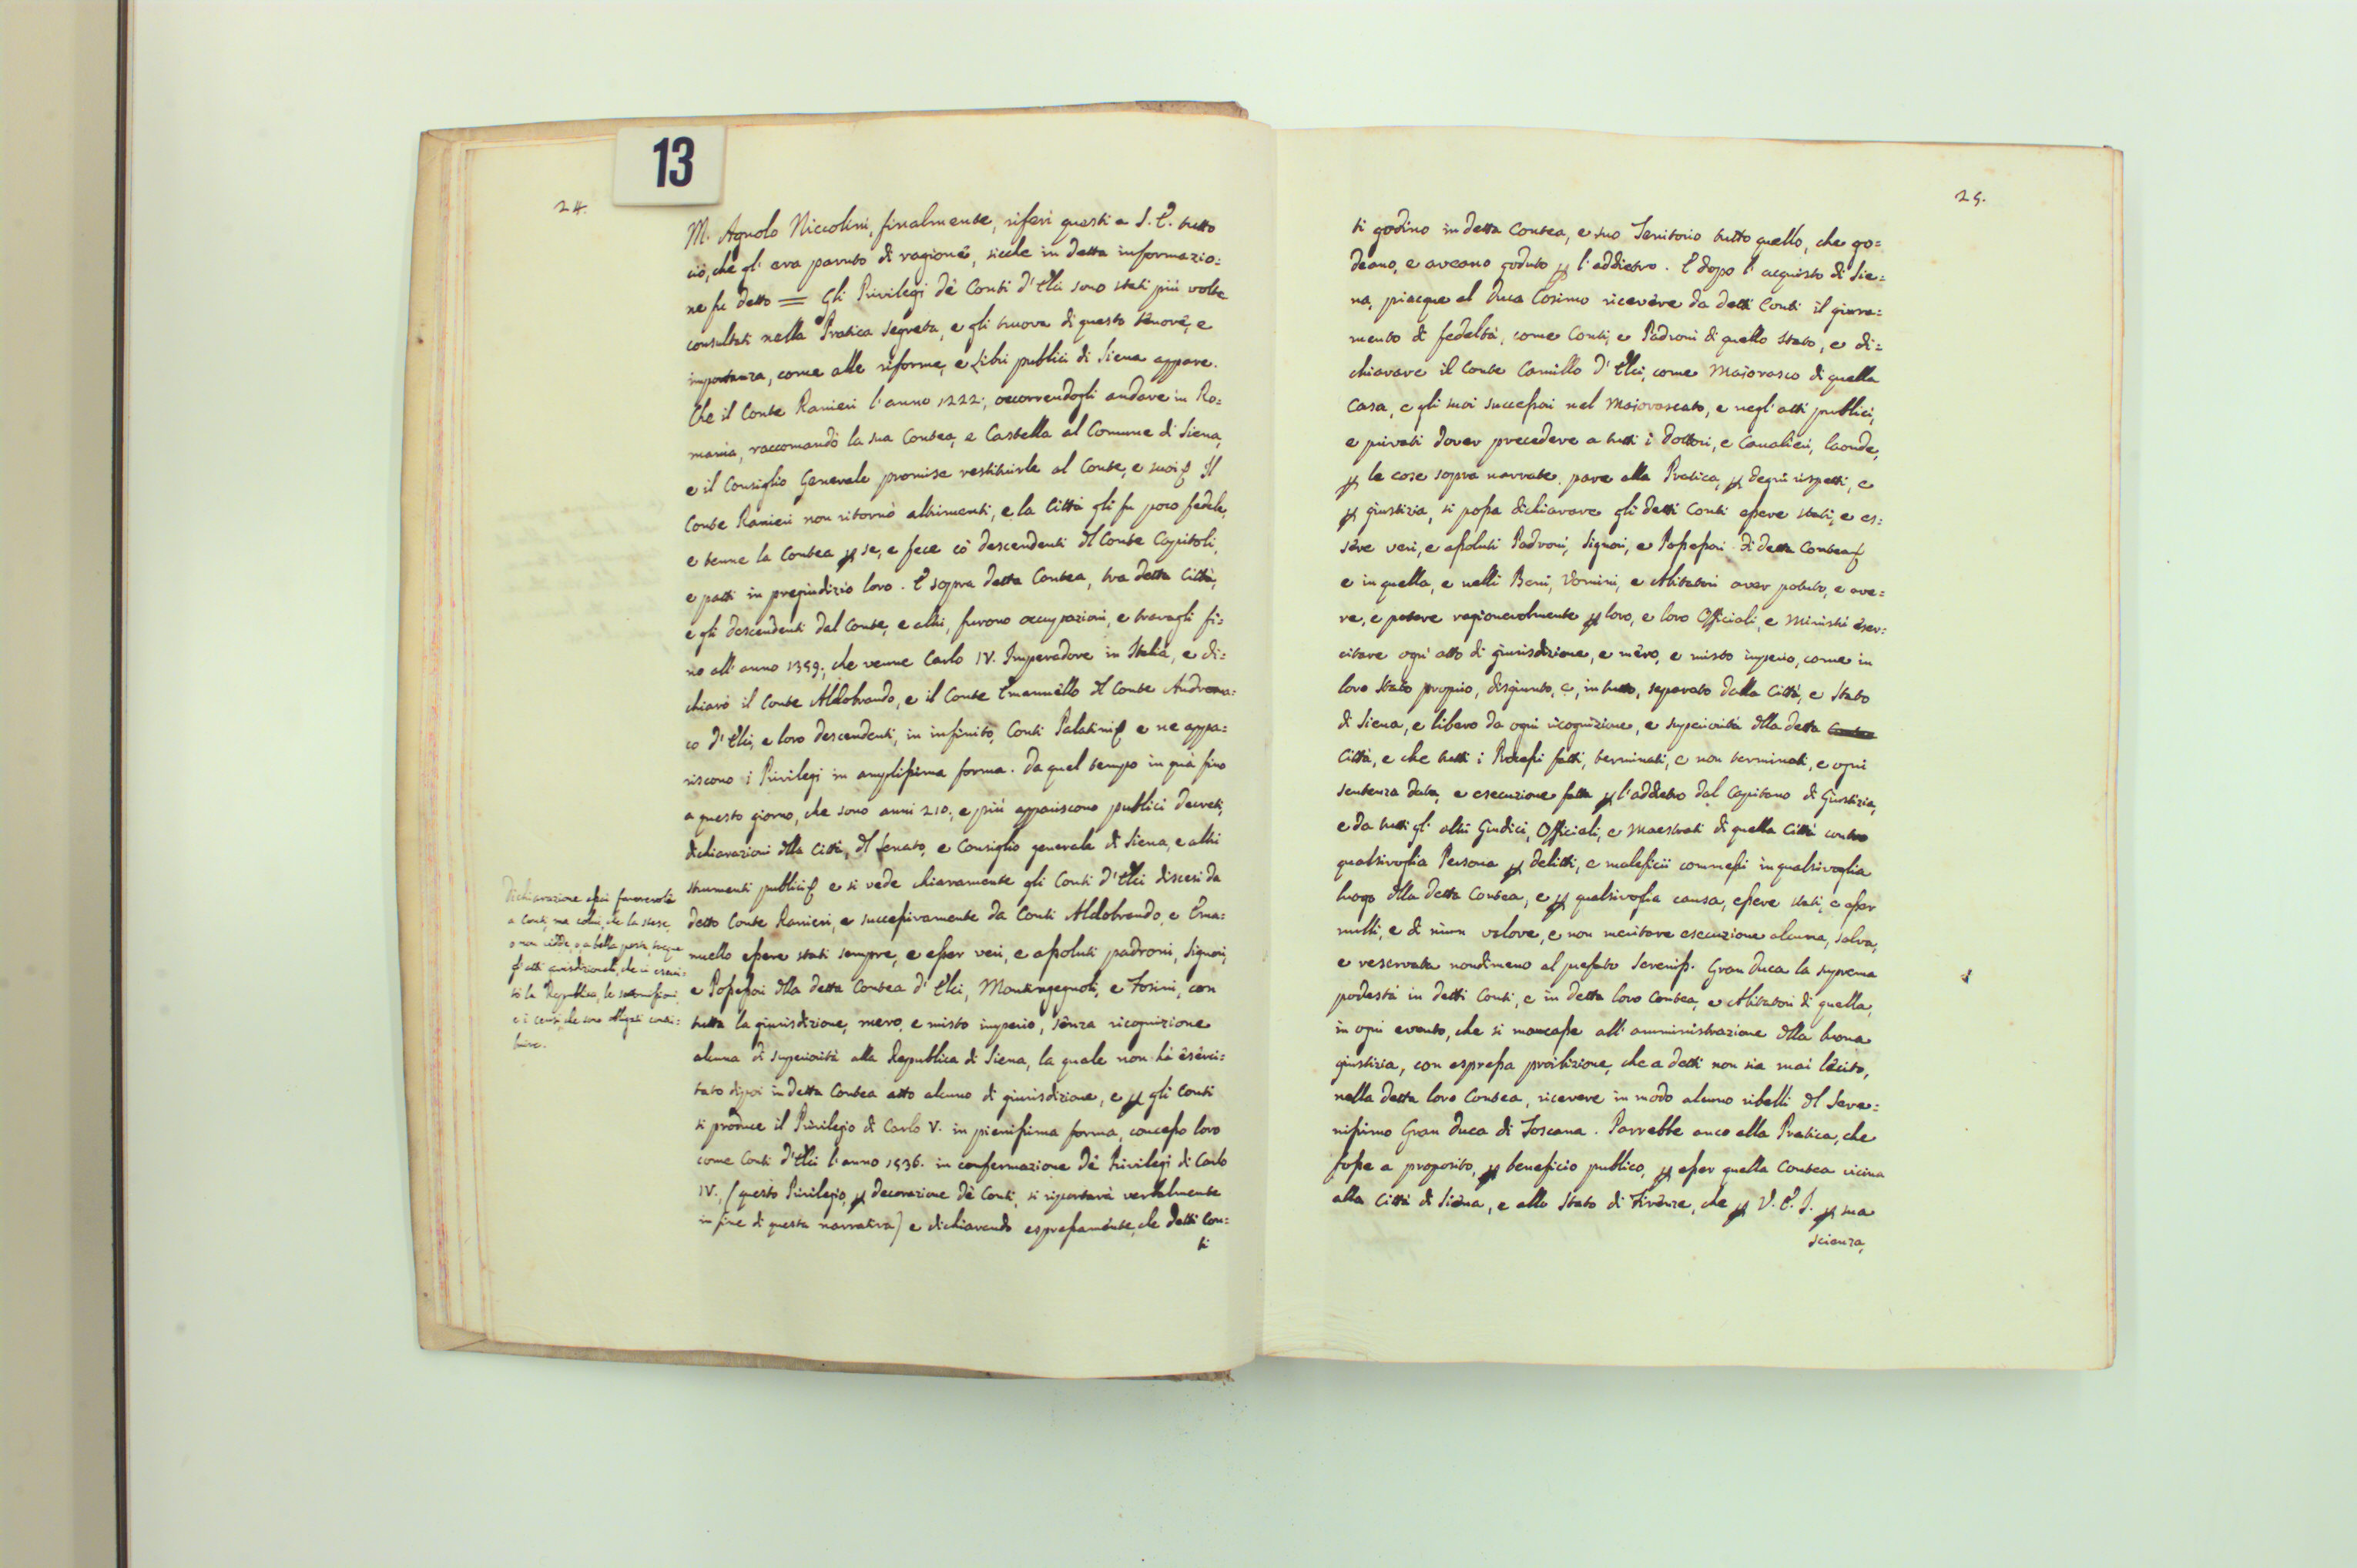 13
24.
M. Agnolo Niccolini, finalmente, riferi questi a S. E. tutto
ciò, che gl' era paruto di ragione, sicche in detta informazio=
ne fu detto = Gli Privilegi dè Conti d'Elci sono stati più volte
consultati nella Pratica segreta, e gli truova di questo tenore, e
importanza, come alle riforme, e Libri publici di Siena appare.
Che il Conte Ranieri l'anno 1222., occorrendogli andare in Ro=
mania, raccomandò la sua Contea, e Castella al Comune di Siena,
e il Consiglio Generale promise restituirle al Conte, e suoi Il
Conte Ranieri non ritornò altrimenti, e la Città gli fu poco fedele,
e tenne la Contea p se, e fece cò descendenti dl Conte Capitoli,
e patti in pregiudizio loro. E sopra detta Contea, tra detta Città,
e gli descendenti del Conte, e altri, furono occupazioni, e travagli fi=
no all' anno 1359., che venne Carlo IV. Imperadore in Italia, e di=
chiarò il Conte Aldobrando, e il Conte Emanuello dl Conte Androma=
co d'Elci, e loro descendenti, in infinito, Conti Palatini e ne appa=
riscono i Privilegi in amplissima forma. Da quel tempo in quà fino
a questo giorno, che sono anni 210., e più appariscono publici decreti,
dichiarazioni dlla Città, dl Senato, e Consiglio generale di Siena, e altri
strumenti publici e si vede chiaramente gli Conti d'Elci discesi da
detto Conte Ranieri, e successivamente da Conti Aldobrando, e Ema=
nuello essere stati sempre, e esser veri, e assoluti padroni, Signori,
e Possessori dlla detta Contea d'Elci, Montingegnoli, e Fosini, con
tutta la giurisdizione, mero, e misto imperio, senza ricognizione
alcuna di superiorità alla Republica di Siena, la quale non hà eserci=
tato dipoi in detta Contea atto alcuno di giurisdizione, e p gli Conti
si produce il Privilegio di Carlo V. in pienissima forma, concesso loro
come Conti d'Elci l'anno 1536. in confermazione dè Privilegi di Carlo
IV., (questo Privilegio, p decorazione dè Conti, si riportarà verbalmente
in fine di questa narrativa) e dichiarando espressamente, che detti Con=
ti
Dichiarazione assai favorevole
a Conti, ma colui, che la stese,
o non vidde, o a bella posta, tacque
gl' atti giurisdizionali, che ci eserci=
tò la Republica, le sommissioni,
e i censi, che sono obligati contri=
buire.
25.
ti godino in detta Contea, e suo Territorio tutto quello, che go=
deano, e aveano goduto p l'addietro. E dopo l'acquisto di Sie=
na, piacque al Duca Cosimo ricevere da detti Conti il giura=
mento di fedeltà, come Conti, e Padroni di quello Stato, e di=
chiarare il Conte Camillo d'Elci, come Maiorasco di quella
Casa, e gli suoi successori nel Maiorascato, e negl' atti publici,
e privati dover precedere a tutti i Dottori, e Cavalieri, laonde,
p le cose sopra narrate, pare alla Pratica, p degni rispetti, e
p giustizia, si possa dichiarare gli detti Conti essere stati, e es=
sere veri, e assoluti Padroni, Signori, e Possessori di detta Contea
e in quella, e nelli Beni, Uomini, e Abitatori aver potuto, e ave=
re, e potere ragionevolmente p loro, e loro Officiali, e Ministri eser=
citare ogni atto di giurisdizione, e mero, e misto imperio, come in
loro Stato proprio, disgiunto, e, in tutto, separato dalla Città, e Stato
di Siena, e libero da ogni ricognizione, e superiorità dlla detta
Città, e che tutti i Processi fatti, terminati, e non terminati, e ogni
sentenza data, e esecuzione fatta p l'addietro dal Capitano di Giustizia,
e da tutti gl' altri Giudici, Officiali, e Maestrati di quella Città contro
qualsivoglia Persona p delitti, e maleficii commessi in qualsivoglia
luogo dlla detta Contea, e p qualsivoglia causa, essere stati, e esser
nulli, e di niun valore, e non meritare esecuzione alcuna, salva,
e reservata nondimeno al prefato Sereniss. Gran Duca la suprema
podestà in detti Conti, e in detta loro Contea, e Abitatori di quella,
in ogni evento, che si mancasse all' amministrazione dlla buona
giustizia, con espressa proibizione, che a detti non sia mai lecito,
nella detta loro Contea, ricevere in modo alcuno ribelli dl Sere=
nissimo Gran Duca di Toscana. Parrebbe anco alla Pratica, che
fosse a proposito, p beneficio publico, p esser quella Contea vicina
alla Città di Siena, e allo Stato di Firenze, che p V. E. I. p sua
scienza,